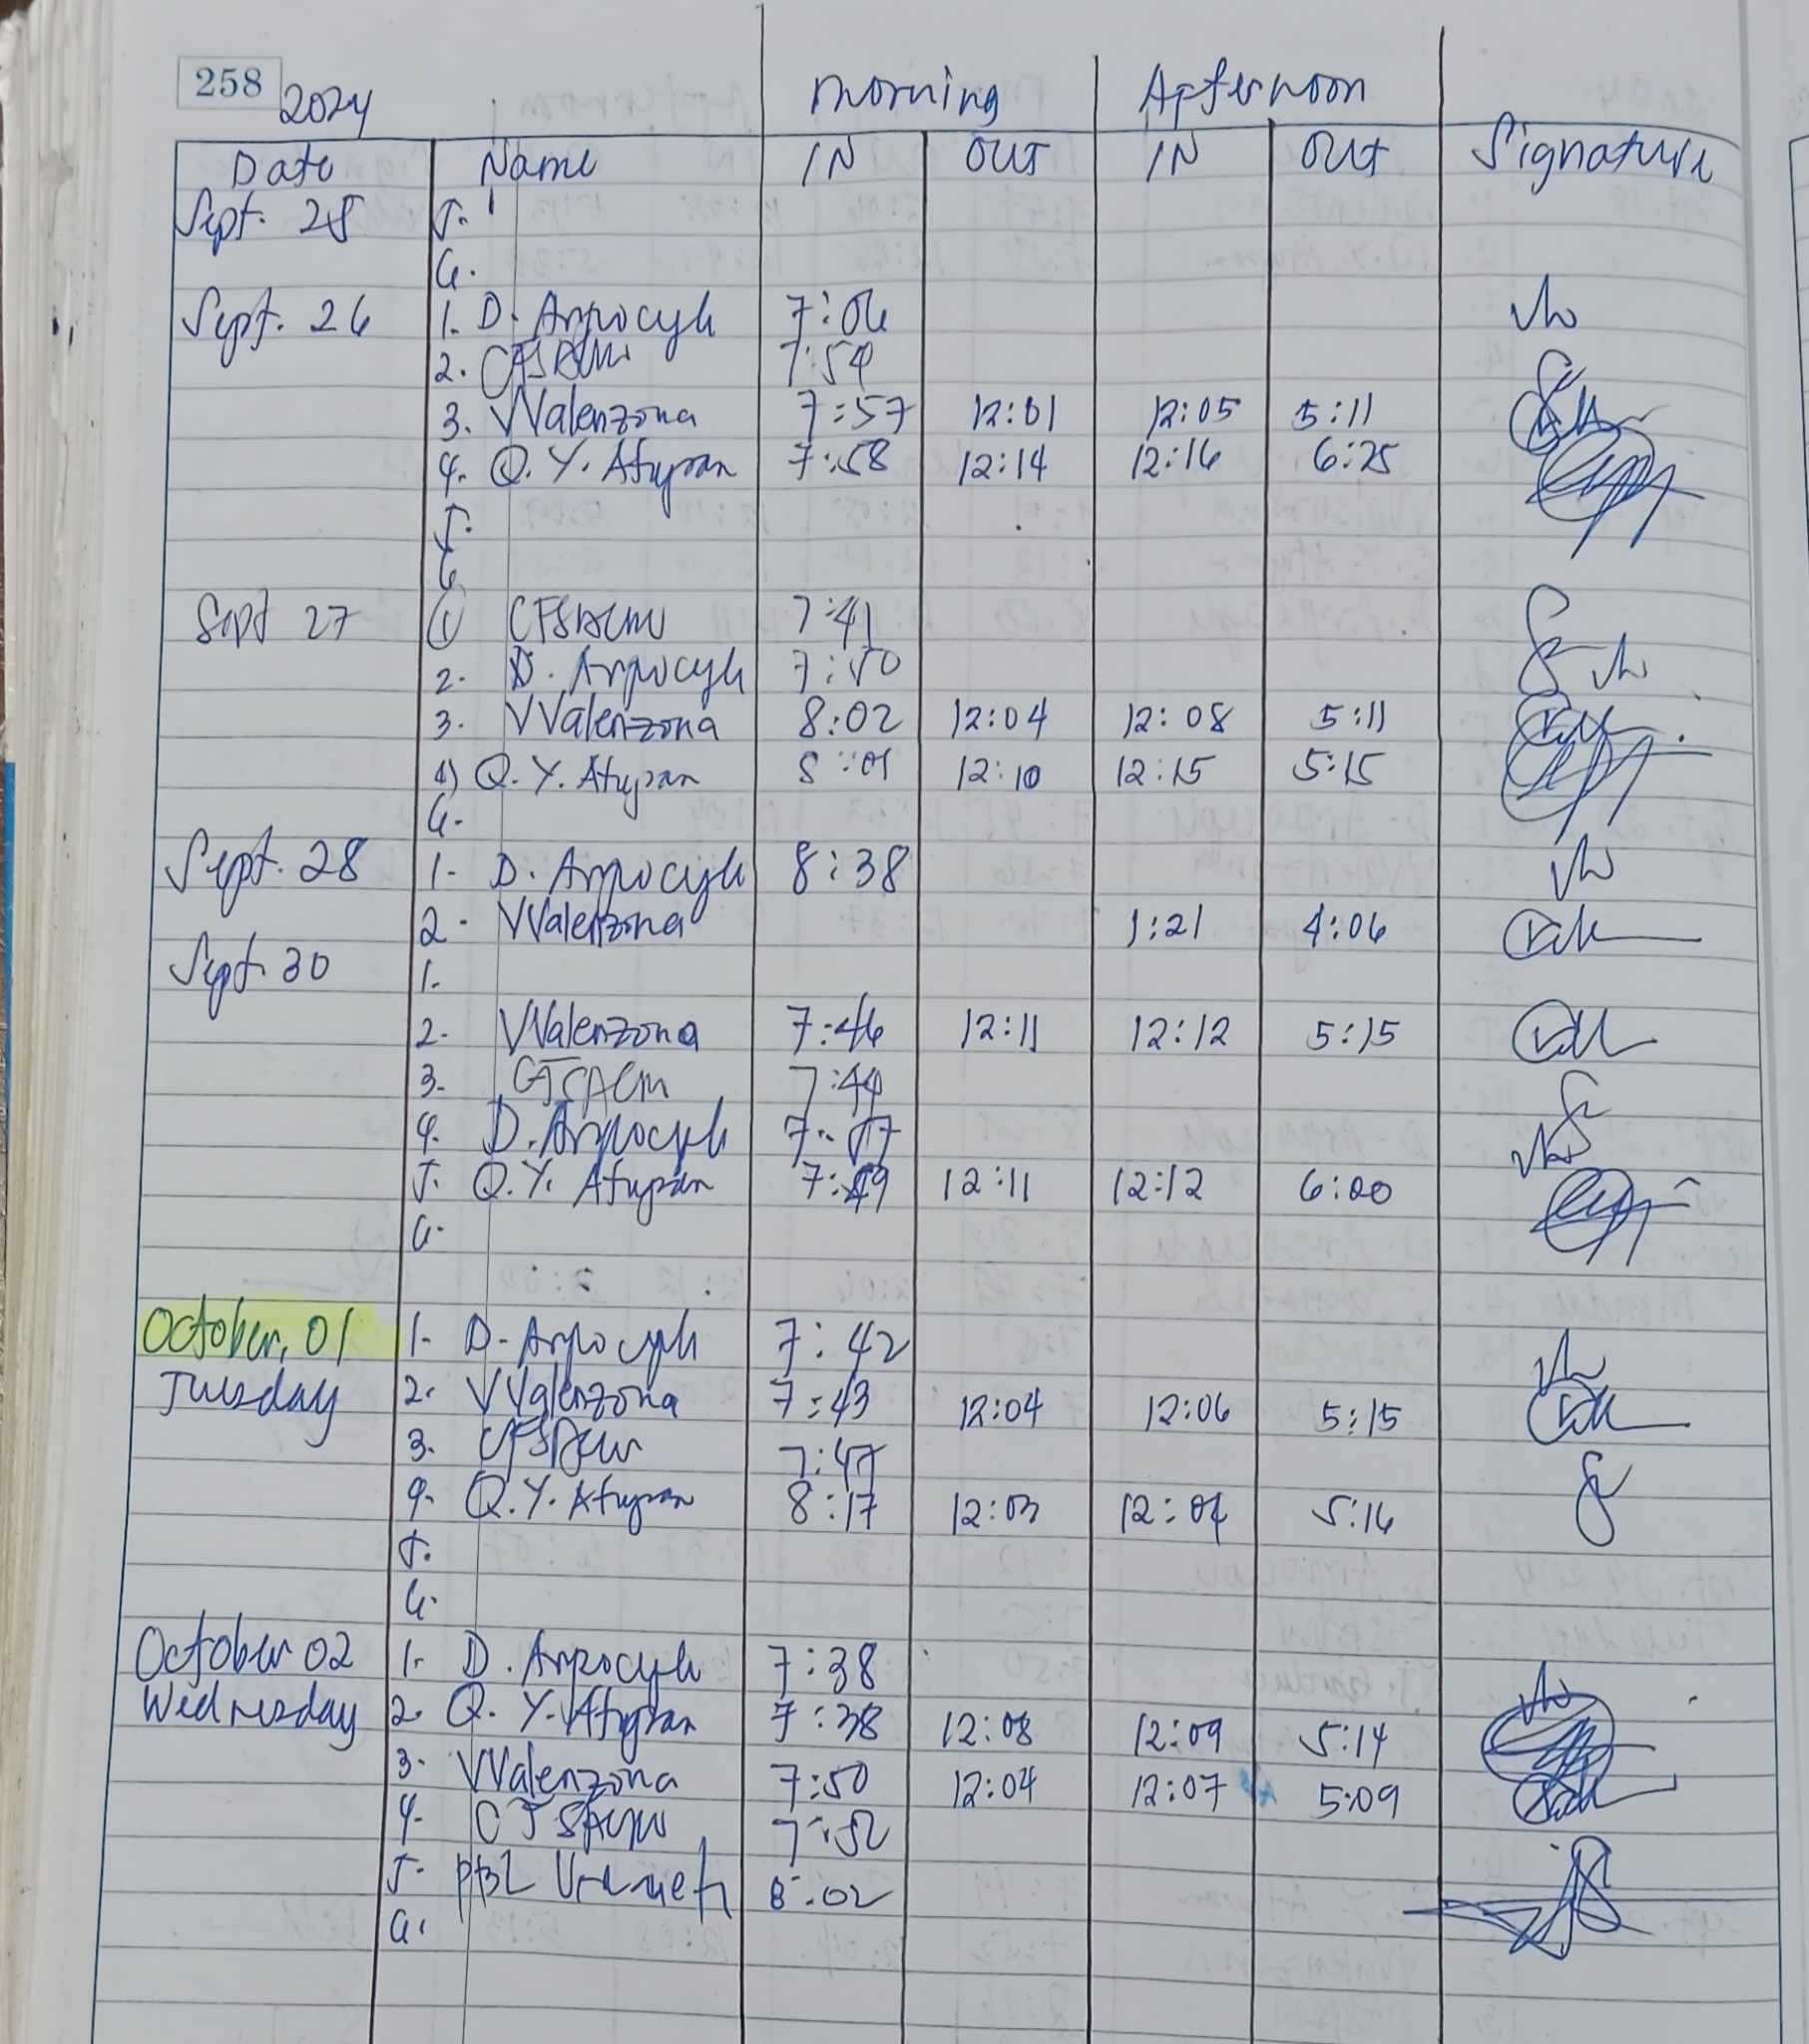 258 2024
Morning Afternoon
Date Name IN OUT IN OUT Signature
Sept. 25 5.
6.
Sept. 26 1. D. Arpocyh 7:06
2. 7:54
3. VValenzona 7:57 12:01 12:05 5:11
4. Q. Y. Atupan 7:58 12:14 12:16 6:25
5.
6
Sept 27 1 7:41
2. D. Arpocyh 7:50
3. VValenzona 8:02 12:04 12:08 5:11
4) Q. Y. Atupan 12:10 12:15 5:15
6.
Sept. 28 1- D. Arpocyh 8:38
2- VValenzona 1:21 4:06
Sept. 30 1.
2- VValenzona 7:46 12:11 12:12 5:15
3- 7:44
4. D. Arpocyh
5. Q. Y. Atupan 7:49 12:11 12:12 6:00
6.
October, 01 1- D. Arpocyh 7:42
Tuesday 2. VValenzona 7:43 12:04 12:06 5:15
3. 7:47
4. Q. Y. Atupan 8:17 12:03 12:04 5:16
5.
6.
October 02 1. D. Arpocyh 7:38
Wednesday 2. Q. Y. Atupan 7:38 12:08 12:09 5:14
3. VValenzona 7:50 12:04 12:07 5:09
4. 7:52
5. 8:02
6.